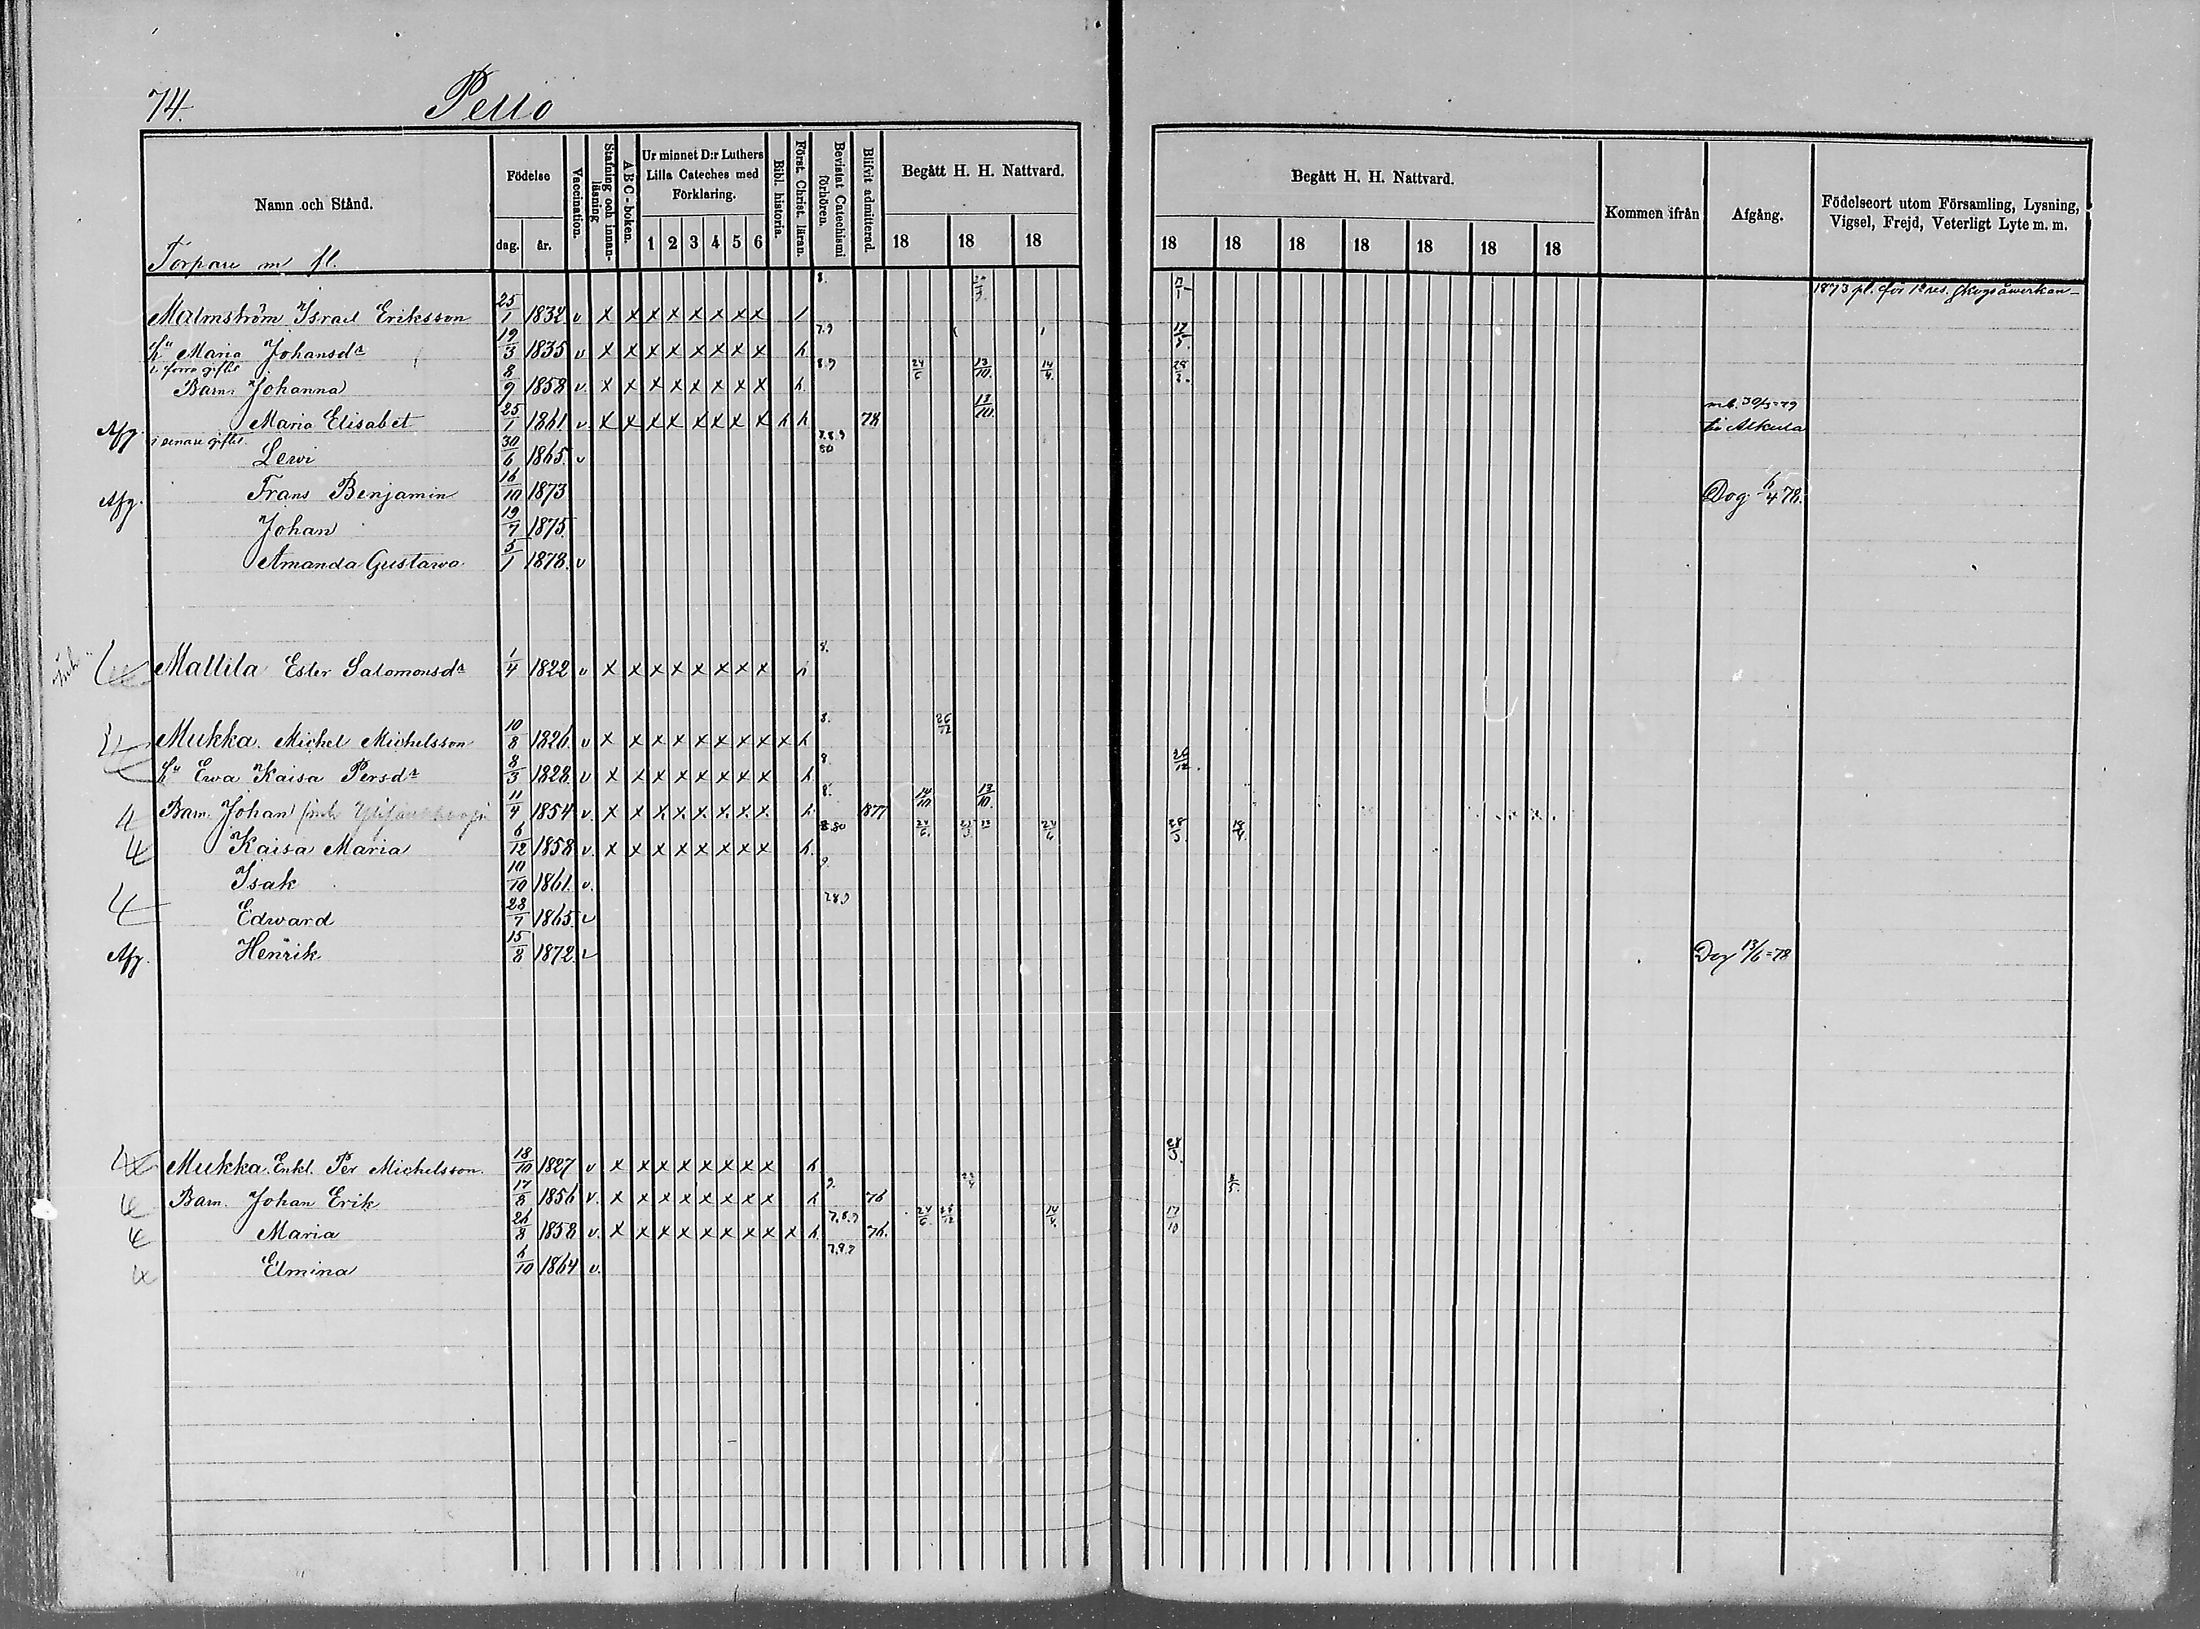 74. Pello
Namn och Stånd.
Födelse
dag. år.
Vaccination.
Stafning och innan-läsning
ABC-boken.
Ur minnet D:r Luthers Lilla Cateches med Förklaring.
1 2 3 4 5 6
Bibl. historia.
Först. Christ. läran.
Bevistat Catechismi förhören.
Blifvit admitterad.
Begått H. H. Nattvard.
18 18 18
Begått H. H. Nattvard.
18 18 18 18 18 18 18
Kommen ifrån
Afgång.
Födelseort utom Församling, Lysning, Vigsel, Frejd, Veterligt Lyte m. m.
Torpare m fl.
Malmström Israel Eriksson 25/1 1832 v x x x x x x x x 8. 1873 pl. för 1a res. skogsåverkan
hu Maria Johansdr 19/3 1835 v x x x x x x x x h 7.9 17/5.
i förra giftet
Barn. Johanna 8/9 1858 v. x x x x x x x x h 8.9 24/6 13/10. 14/4. 28/3.
Afg. Maria Elisabet 25/1 1861 v. x x x x x x x x h h 78 13/10 till Alkula
i senare giftet
Lewi 30/6 1865. v 7.8.9 80
Afg. Frans Benjamin 16/10 1873 Dog 6/4 78.
Johan 19/7 1875.
Amanda Gustava 5/1 1878. v
Mattila Ester Salomonsdr 1/4 1822 v x x x x x x x x h 8.
Mukka. Michel Michelsson 10/8 1826 v x x x x x x x x x h 8. 26/12
hu Ewa Kaisa Persdr 8/3 1828. v x x x x x x x x h 8. 26/12.
Barn. Johan 11/4 1854 v. x x x x x x x x h 8. 1877 14/10 13/10.
Kaisa Maria 6/12 1858 v. x x x x x x x x h. 8.80 24/6. 24/6 28/3. 18/4.
Isak 10/10 1861. v. 9
Edward 28/7 1865. v 7.8.9
Afg. Henrik 15/8 1872. v Dog 13/6=78
Mukka. Enkl. Per Michelsson. 18/10 1827 v x x x x x x x x h 28/3.
Barn. Johan Erik 17/8 1856 v. x x x x x x x x h 9. 76 22/4 2/5.
Maria 26/8 1858 v. x x x x x x x x x h 7.8.9 76. 24/6. 26/12 14/4. 17/10
Elmina 6/10 1864 v. 7.8.9